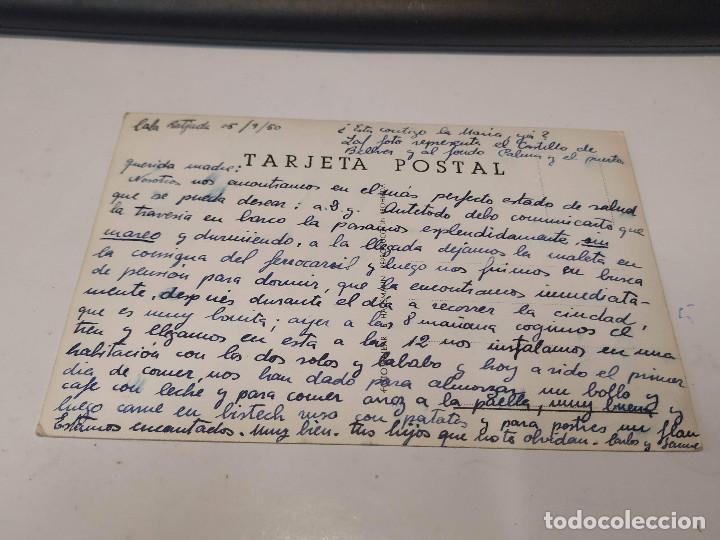 Cala Ratjada 15/9/50
¿Esta contigo la Maria, qui?
La foto representa el Castillo de
Bellver y al fondo Palma y el puerto
TARJETA POSTAL
querida madre:
Nosotros nos encontramos en el más perfecto estado de salud
que se pueda desear: a. D. g. Antetodo debo communicarte que
la travesia en barco la pasamos esplendidamente, sin
mareo y durmiendo, a la llegada dejamos la maleta en
la consigna del ferrocarril y luego nos fuimos en busca
de pensión para dormir, que la encontramos inmediata-
mente, después durante el día a recorrer la ciudad,
que es muy bonita; ayer a las 8 mañana cogimos el
tren y llegamos en esta a las 12 nos instalamos en una
habitación con los dos solos y lababo y hoy a sido el primer
dia de comer, nos han dado para almorzar un bollo y
cafe con leche y para comer arroz a la paella, muy buena y
luego carne en bistech ruso con patatas y para postres un flan
Estamos encantados. Muy bien. tus hijos que no te olvidan. Carlos y
todocoleccion.net